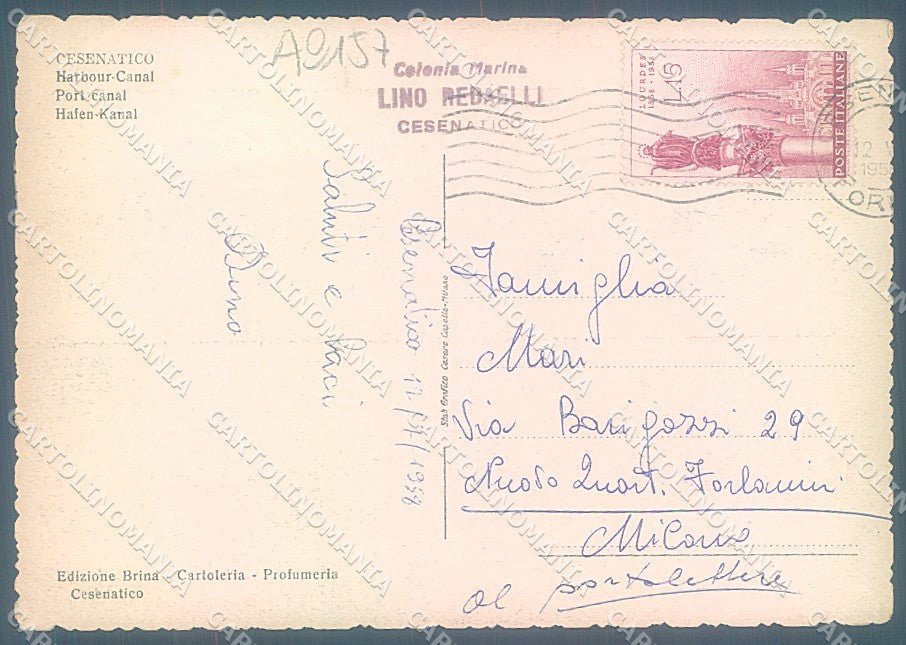 CESENATICO
Harbour-Canal
Port-canal
Hafen-Kanal
A9157
Colonia Marina
LINO REDAELLI
CESENATICO
LOURDES
1858 - 1958
L.15
POSTE ITALIANE
Saluti e baci
Dino
Cesenatico 12/VI/1958
Stab Grafico Cesare Capello-Milano
Famiglia
Mari
Via Barigozzi 29
Nuovo Quart. Forlanini
Milano
al portalettere
Edizione Brina - Cartoleria - Profumeria
Cesenatico
CARTOLINOMANIA